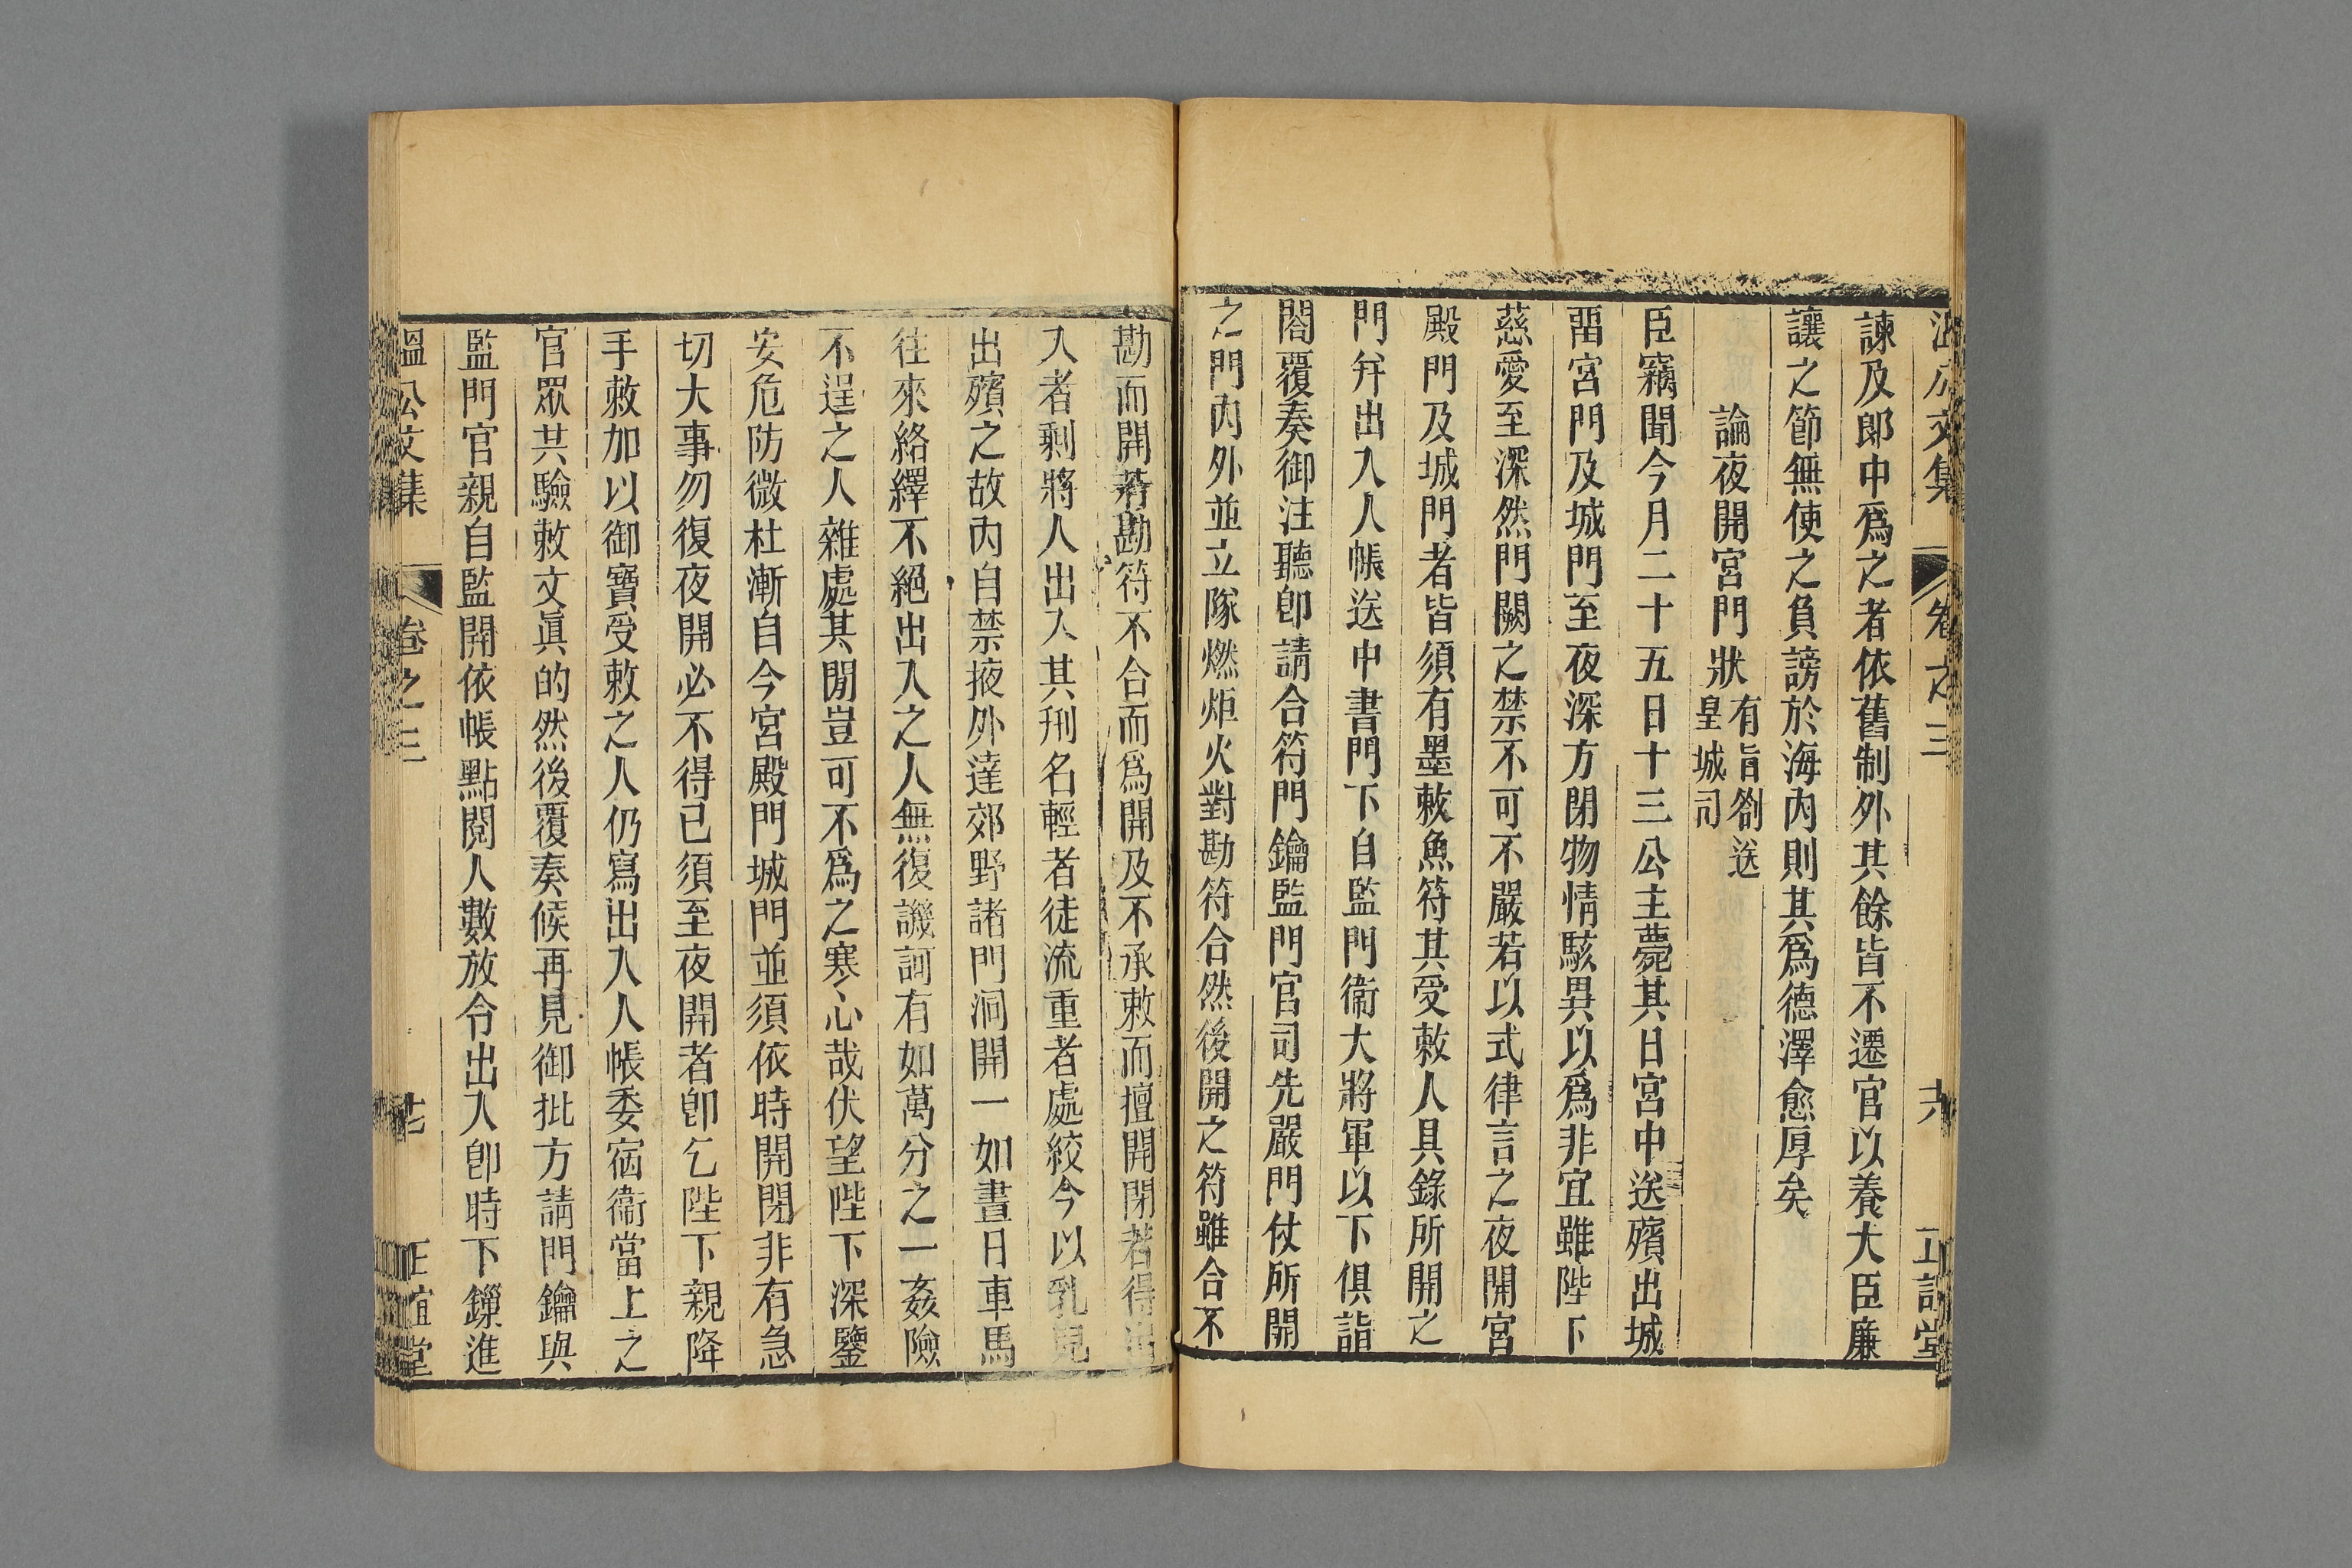 溫公文集 卷之三 十六 正誼堂
諫及郎中爲之者依舊制外其餘皆不遷官以養大臣廉
讓之節無使之負謗於海內則其爲德澤愈厚矣
論夜開宮門狀 有旨劄送
皇城司
臣竊聞今月二十五日十三公主薨其日宮中送殯出城
畱宮門及城門至夜深方閉物情駭異以爲非宜雖陛下
慈愛至深然門闕之禁不可不嚴若以式律言之夜開宮
殿門及城門者皆須有墨敕魚符其受敕人具錄所開之
門幷出入人帳送中書門下自監門衞大將軍以下俱詣
閤覆奏御注聽卽請合符門鑰監門官司先嚴門仗所開
之門內外並立隊燃炬火對勘符合然後開之符雖合不
勘而開若勘符不合而爲開及不承敕而擅開閉者得出
入者剩將人出入其刑名輕者徒流重者處絞今以乳兒
出殯之故內自禁掖外達郊野諸門洞開一如晝日車馬
往來絡繹不絕出入之人無復譏訶有如萬分之一姦險
不逞之人雜處其閒豈可不爲之寒心哉伏望陛下深鑒
安危防微杜漸自今宮殿門城門並須依時開閉非有急
切大事勿復夜開必不得已須至夜開者卽乞陛下親降
手敕加以御寶受敕之人仍寫出入人帳委宿衞當上之
官眾共驗敕文眞的然後覆奏候再見御批方請門鑰與
監門官親自監開依帳點閱人數放令出入卽時下鏁進
溫公文集 卷之三 七 正誼堂